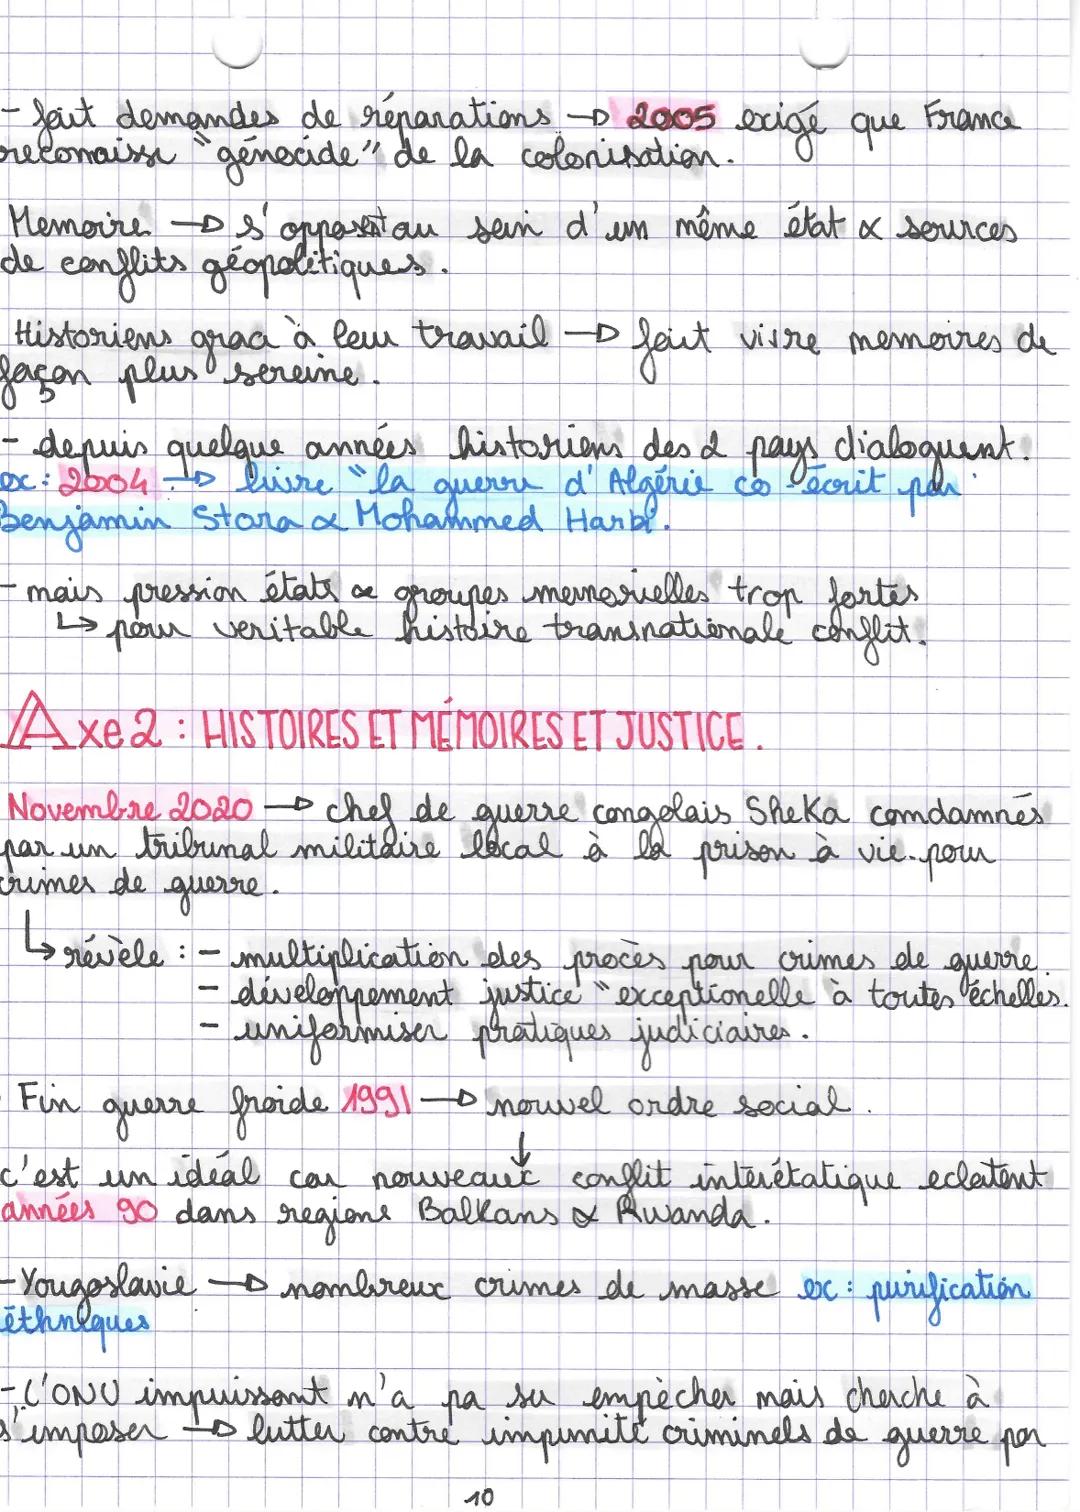 - fait demandes de réparations → 2005 exigé que France
reconaisse "génocide" de la colonisation.
Memoire → s'opposent au sein d'un même état & sources
de conflits géopolitiques.
Historiens grac à leur travail → fait vivre memoires de
façon plus sereine.
- depuis quelque années historiens des 2 pays dialoguent.
ex : 2004 → livre "la guerre d'Algérie co-écrit par
Benjamin Stora & Mohammed Harbi.
- mais pression états & groupes memorielles trop fortes
↳ pour veritable histoire transnationale conflit.
Axe 2 : HISTOIRES ET MÉMOIRES ET JUSTICE.
Novembre 2020 → chef de guerre congolais SheKa comdamnés
par un tribunal militaire local à la prison à vie pour
crimes de guerre.
↳ révèle : - multiplication des procès pour crimes de guerre.
- développement justice "exceptionelle à toutes échelles.
- uniformiser pratiques judiciaires.
Fin guerre froide 1991 → nouvel ordre social.
↓
c'est un idéal car nouveaux conflit interétatique eclatent
années 90 dans regions Balkans & Rwanda.
- Yougoslavie → nombreux crimes de masse ex : purification
éthniques
- L'ONU impuissant n'a pa su empêcher mais cherche à
s'imposer → lutter contre impunité criminels de guerre par
10